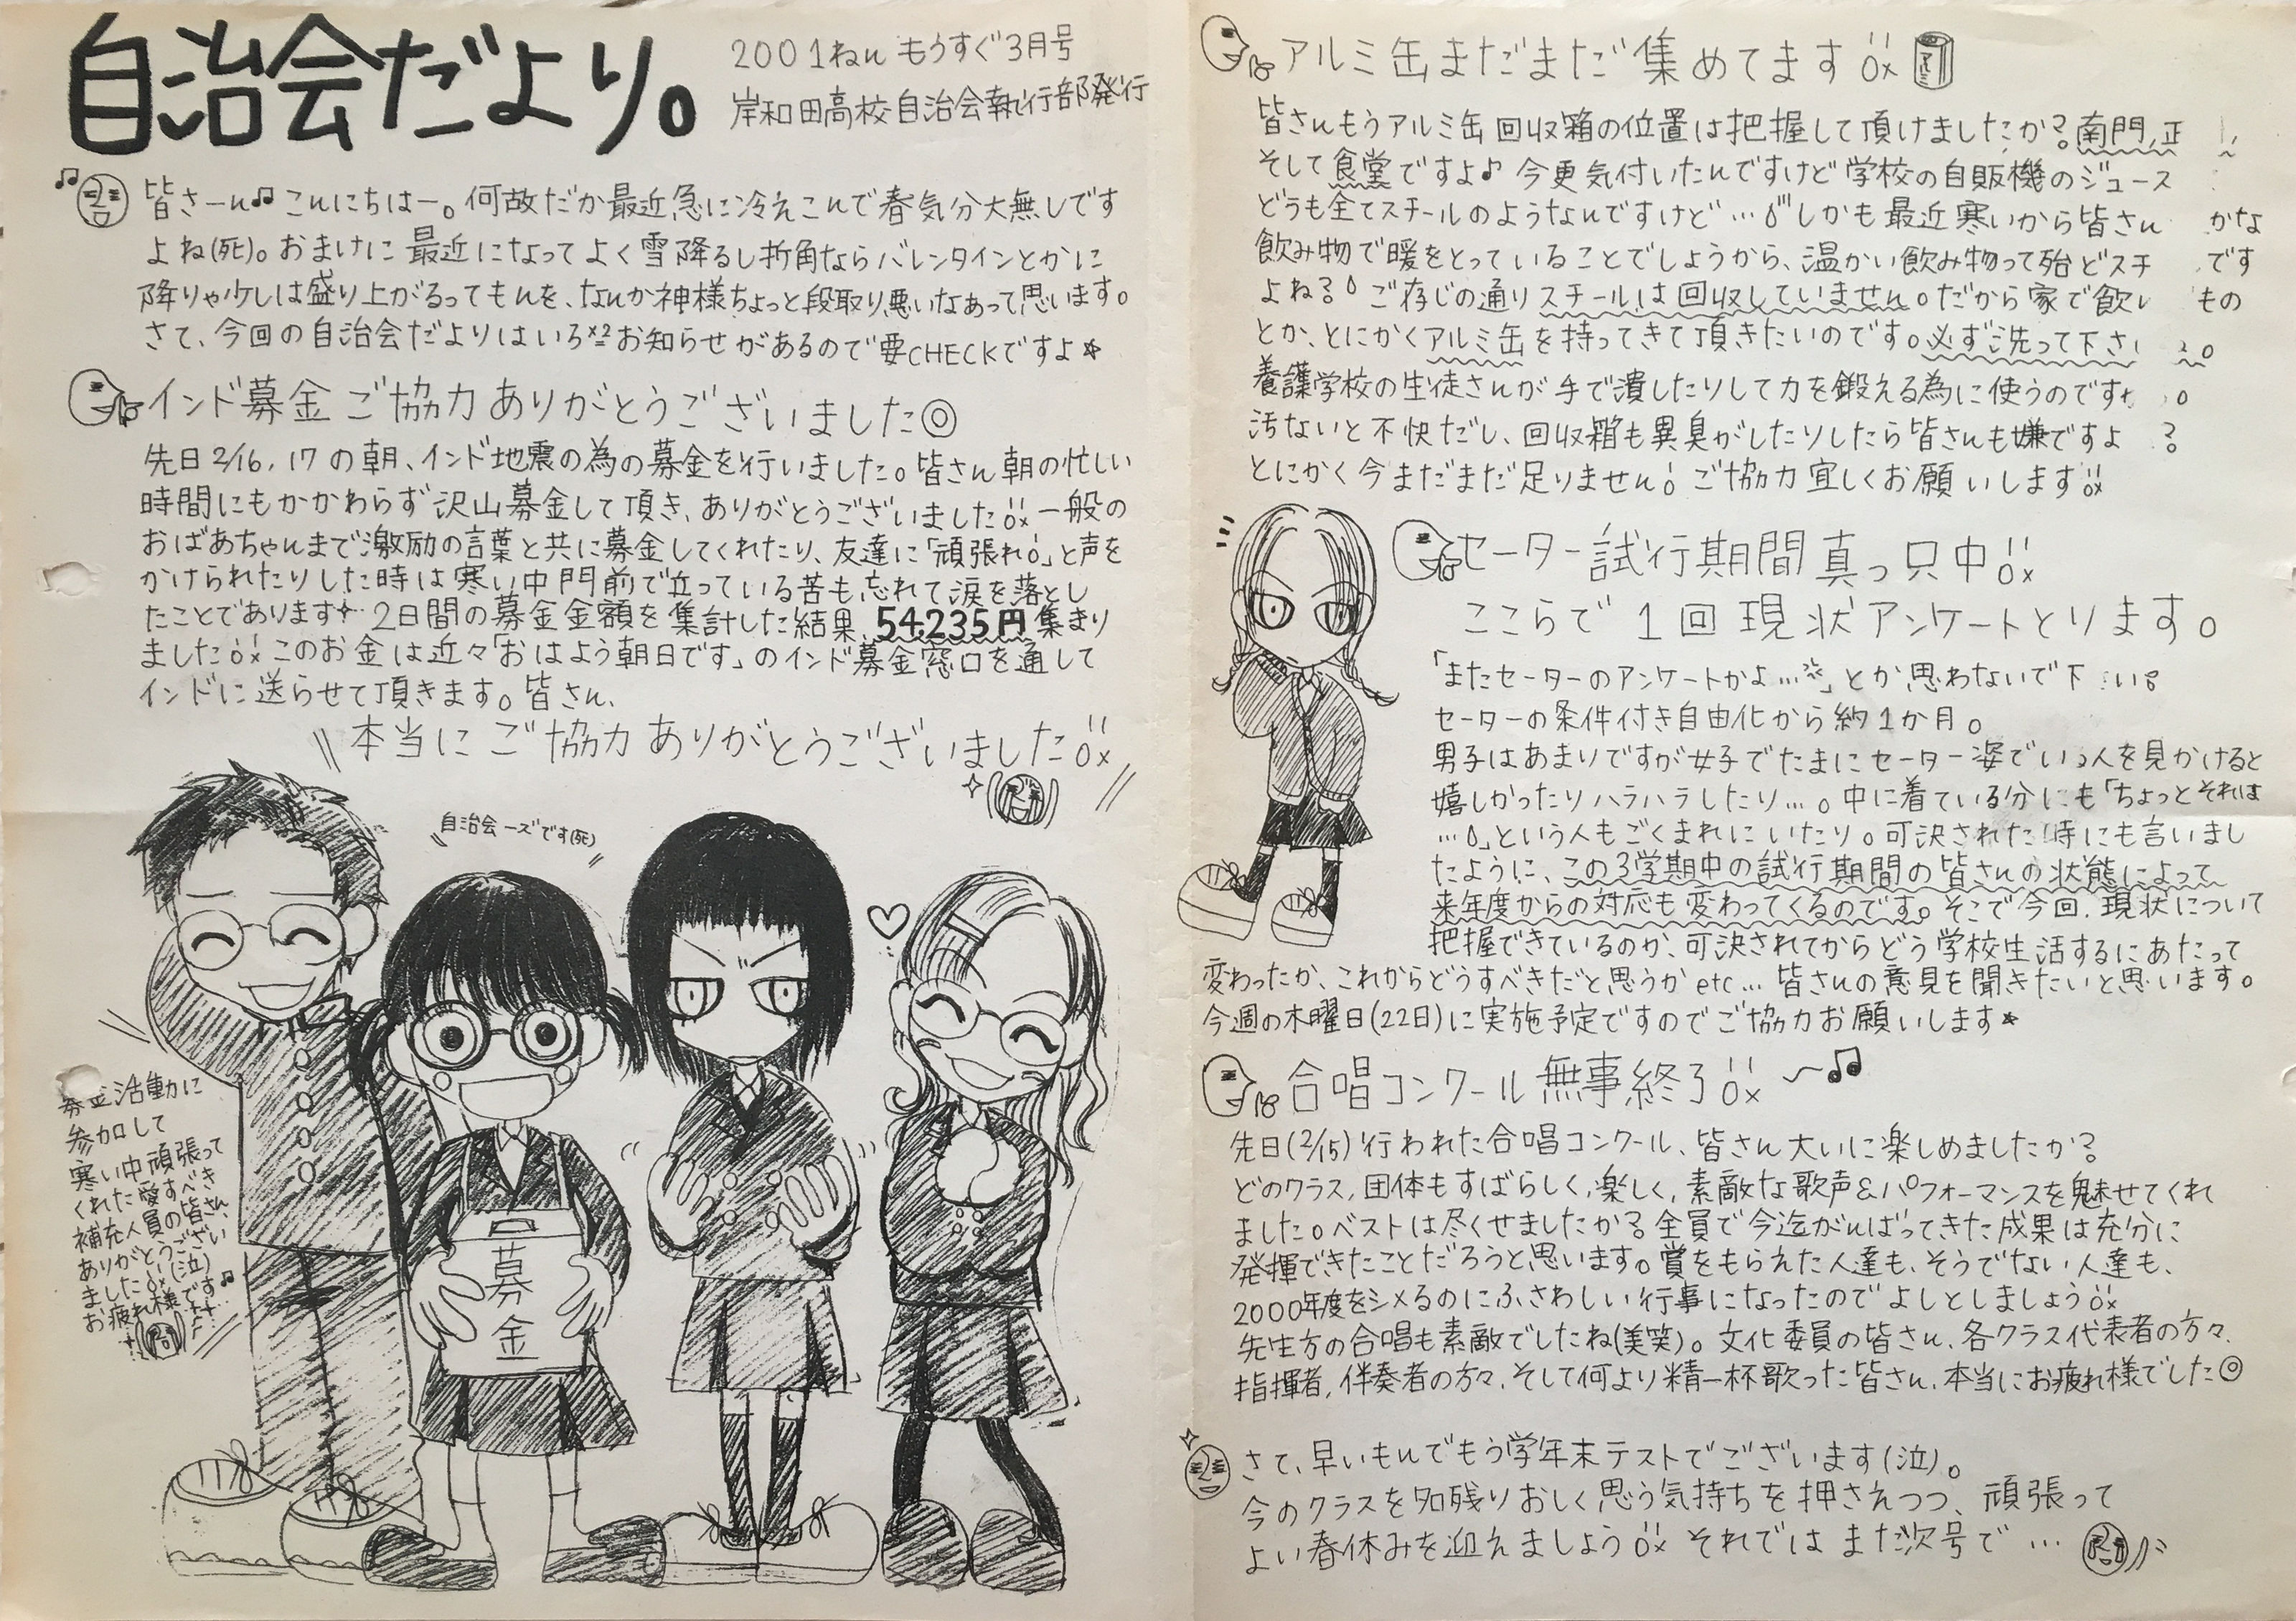 自治会だより。
2001ねん もうすぐ3月号
岸和田高校自治会執行部発行
皆さーん♫ こんにちはー。何故だか最近急に冷えこんで春気分大無しです
よね(死)。おまけに最近になってよく雪降るし折角ならバレンタインとかに
降りゃ少しは盛り上がるってもんを、なんか神様ちょっと段取り悪いなあって思います。
さて、今回の自治会だよりはいろ×2お知らせがあるので要CHECKですよ☆
インド募金ご協力ありがとうございました◎
先日2/16,17の朝、インド地震の為の募金を行いました。皆さん朝の忙しい
時間にもかかわらず沢山募金して頂き、ありがとうございました!! 一般の
おばあちゃんまで激励の言葉と共に募金してくれたり、友達に「頑張れ!」と声を
かけられたりした時は寒い中門前で立っている苦も忘れて涙を落とし
たことであります✧ 2日間の募金金額を集計した結果、54,235円集まり
ました!! このお金は近々「おはよう朝日です」のインド募金窓口を通して
インドに送らせて頂きます。皆さん、
本当にご協力ありがとうございました!!
自治会ーズです(死)
募金活動に
参加して
寒い中頑張って
くれた愛すべき
補充人員の皆さん、
ありがとうござい
ました!!(泣)
お疲れ様です♪
募金
アルミ缶まだまだ集めてます!!
アルミ
皆さんもうアルミ缶回収箱の位置は把握して頂けましたか?南門,正
そして食堂ですよ♪ 今更気付いたんですけど学校の自販機のジュース
どうも全てスチールのようなんですけど…しかも最近寒いから皆さん かな
飲み物で暖をとっていることでしょうから、温かい飲み物って殆どスチ です
よね? ご存じの通りスチールは回収していません。だから家で飲 もの
とか、とにかくアルミ缶を持ってきて頂きたいのです。必ず洗って下さ
養護学校の生徒さんが手で潰したりして力を鍛える為に使うのです
汚ないと不快だし、回収箱も異臭がしたりしたら皆さんも嫌ですよ ?
とにかく今まだまだ足りません! ご協力宜しくお願いします!!
セーター試行期間真っ只中!!
ここらで1回現状アンケートとります。
「またセーターのアンケートかよ…」とか思わないで下 い!
セーターの条件付き自由化から約1か月。
男子はあまりですが女子でたまにセーター姿でい 人を見かけると
嬉しかったりハラハラしたり…。中に着ている分にも「ちょっとそれは
…」という人もごくまれにいたり。可決された時にも言いまし
たように、この3学期中の試行期間の皆さんの状態によって
来年度からの対応も変わってくるのです。そこで今回、現状について
把握できているのか、可決されてからどう学校生活するにあたって
変わったか、これからどうすべきだと思うか etc… 皆さんの意見を聞きたいと思います。
今週の木曜日(22日)に実施予定ですのでご協力お願いします★
合唱コンクール無事終了!! 〜♫
先日(2/15)行われた合唱コンクール、皆さん大いに楽しめましたか?
どのクラス,団体もすばらしく,楽しく,素敵な歌声&パフォーマンスを魅せてくれ
ました。ベストは尽くせましたか?全員で今迄がんばってきた成果は充分に
発揮できたことだろうと思います。賞をもらえた人達も、そうでない人達も、
2000年度をシメるのにふさわしい行事になったのでよしとしましょう!!
先生方の合唱も素敵でしたね(美笑)。文化委員の皆さん、各クラス代表者の方々、
指揮者,伴奏者の方々、そして何より精一杯歌った皆さん、本当にお疲れ様でした◎
さて、早いもんでもう学年末テストでございます(泣)。
今のクラスを名残りおしく思う気持ちを押さえつつ、頑張って
よい春休みを迎えましょう!! それではまた次号で…